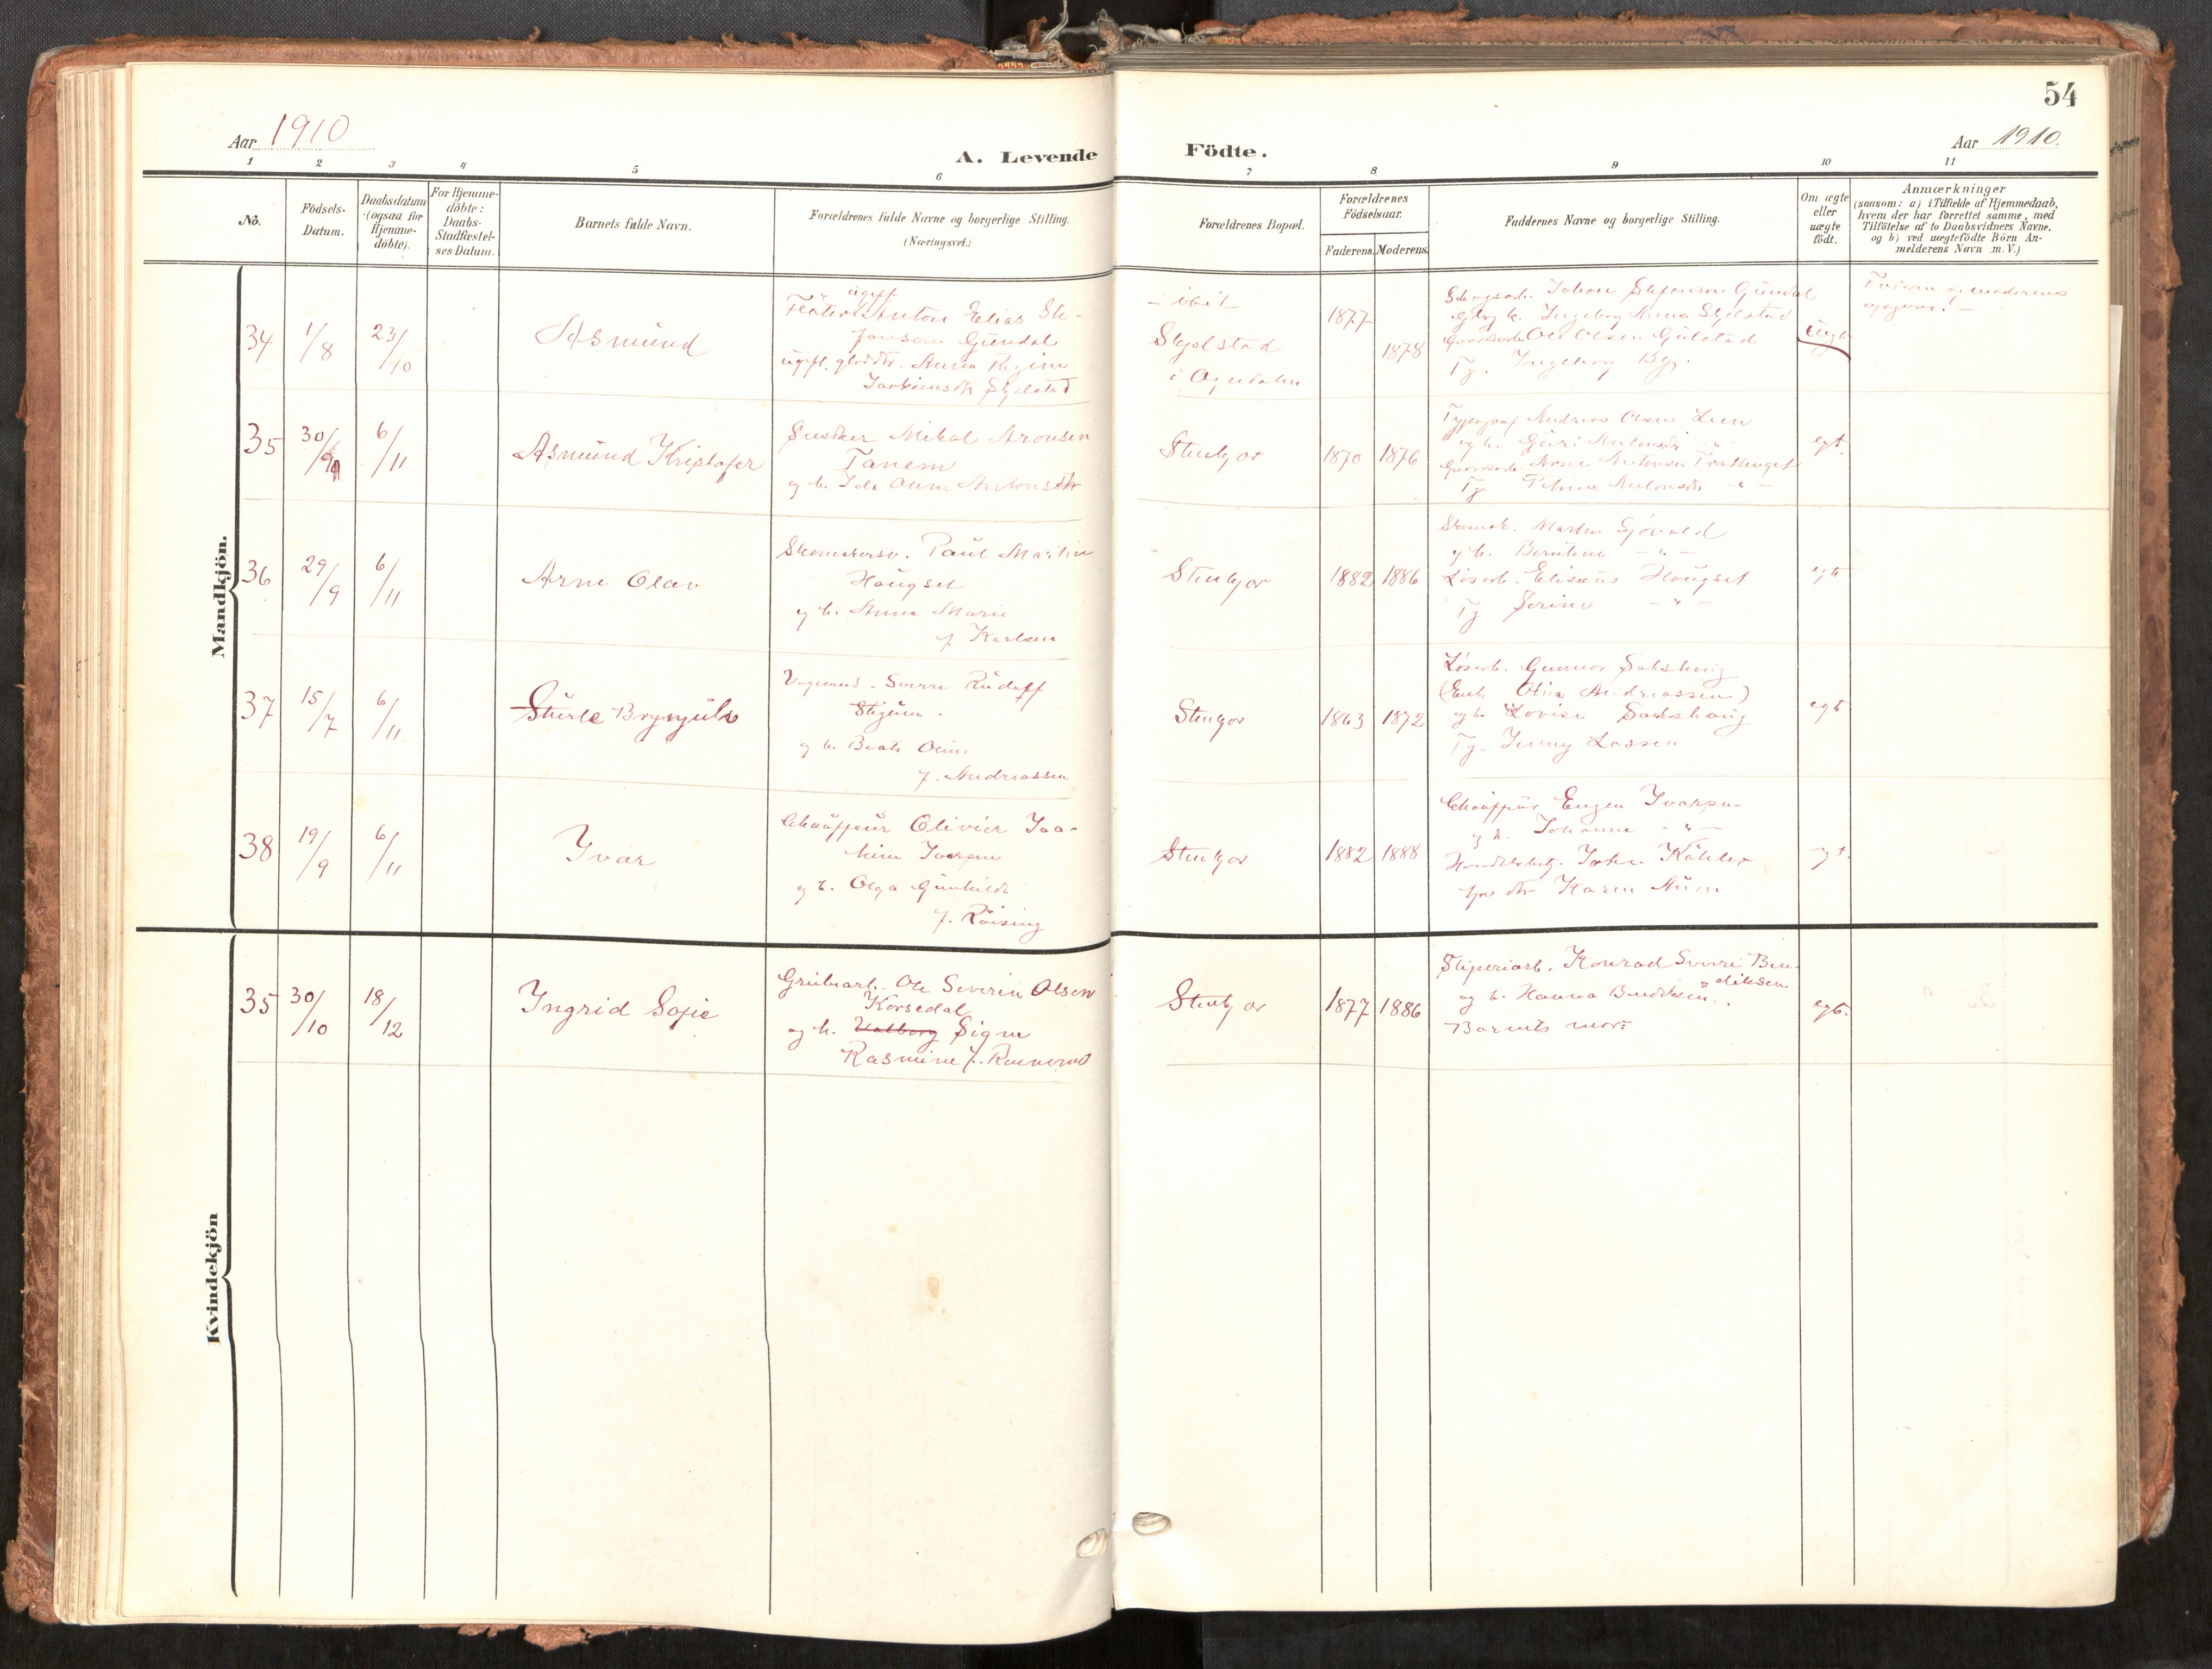 54
Aar 1910
A. Levende Födte.
Aar 1910.
1 2 3 4 5 6 7 8 9 10 11
No.
Födsels-
Datum.
Daabsdatum
(ogsaa for
Hjemme-
döbte).
For Hjemme-
döbte:
Daabs-
Stadfæstel-
ses Datum.
Barnets fulde Navn.
Forældrenes fulde Navne og borgerlige Stilling.
(Næringsvei.)
Forældrenes Bopæl.
Forældrenes
Födselsaar.
Faderens. Moderens.
Faddernes Navne og borgerlige Stilling.
Om ægte
eller
uægte
födt.
Anmærkninger
(saasom: a) i Tilfælde af Hjemmedaab,
hvem der har forrettet samme, med
Tilföielse af to Daabsvidners Navne.
og b) ved uægtefödte Börn An-
melderens Navn m.V.)
Mandkjön.
34
1/8
23/10
Asmund
ugift
Anton Elias Ste-
fansen Gundal
ugift Anna Regine
Skjelstad
Skjelstad
i Ogndalen
1877
1878
Johan Stefansen Gundal
Ingeborg Anna Skjelstad
Ole Olsen Gulstad
Ingeborg
35
30/9
6/11
Asmund Kristofer
Snedker Mikal Aronsen
Tanem
og h. Ida Oline Antonsdtr
Stenkjær
1870 1876
Typograf Andreas Olsen Lien
og h. Guri Antonsdtr - " -
egt.
36
29/9
6/11
Arne Olav
Skomakersv. Paul Martin
Haugset
og h. Anna Marie
f. Karlsen
Stenkjær
1882 1886
Skomak. Martin Sjövold
og h. Berntine - " -
Löserb. Eliseus Haugset
Tj. Serine - " -
egt
37
15/7
6/11.
Sturle Brynjulv
Sverre Rudolf
Stigum.
og h. Beate Oline
f. Andreassen
Stenkjær
1863 1872
Löserb. Gunnar Sakshaug
(Enk. Oline Andreassen)
og h. Lovise Sakshaug
Tj. Jenny Lassen
egt
38
19/9
6/11
Ivar
Chauffeur Olivier Joa-
kim Ivarsen
og h. Olga Gunhilde
f. Röising
Stenkjær
1882 1888
Chauffeur Eugen Ivarsen
og h. Johanne - " -
Handelsbetj. John Köhler
Karen Aune
egt.
Kvindekjön
35
30/10
18/12
Ingrid Sofie
Grubearb. Ole Severin Olsen
Korsedal
og h. Valborg Signe
Rasmine f.
Stenkjær
1877 1886
Sliperiarb. Konrad Sverre Ben-
diktsen
og h. Hanna Bendiktsen.
Barnets mor.
egt.